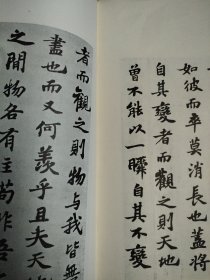 如彼而卒莫消長也蓋將
自其變者而觀之則天地
曾不能以一瞬自其不變
者而觀之則物與我皆無
盡也而又何羨乎且夫天地
之間物各有主苟非吾